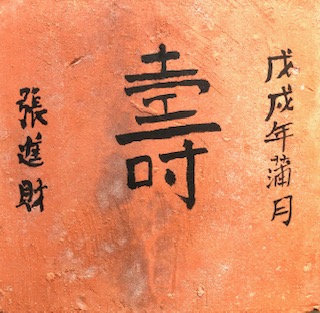 戊戌年蒲月
壽
張進財